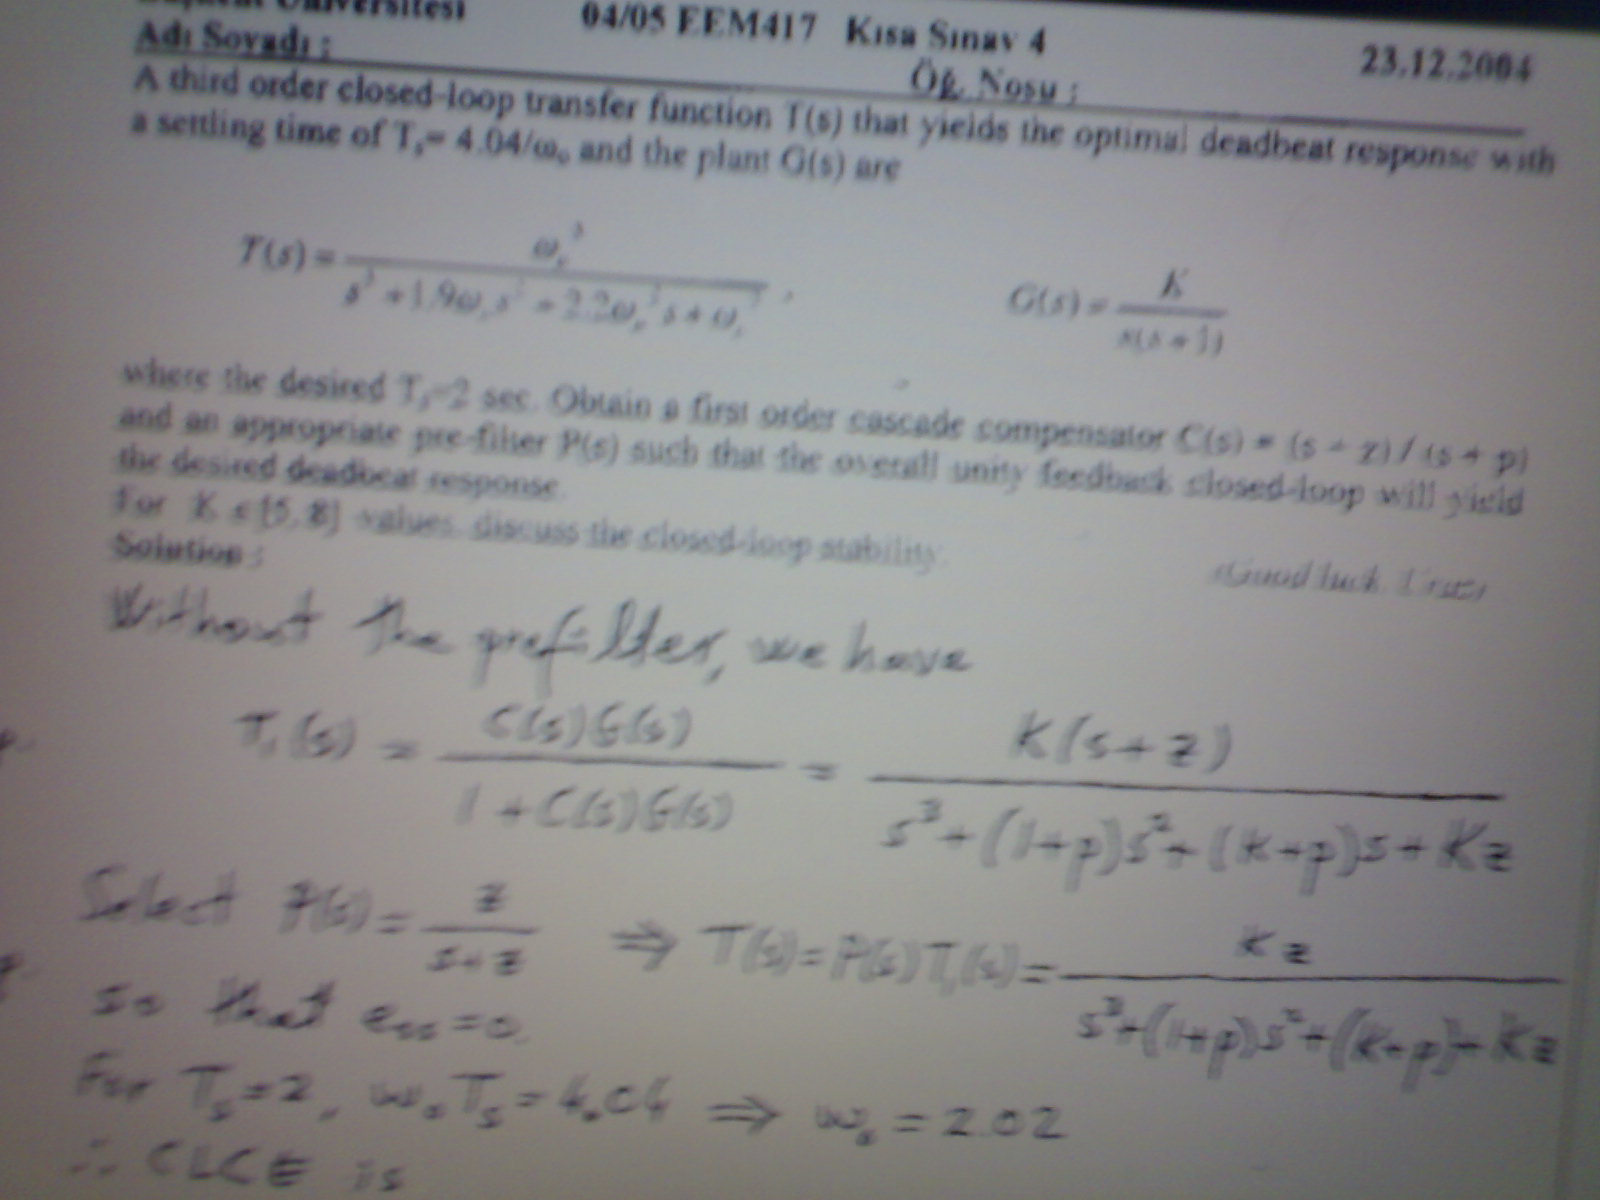 Üniversitesi 04/05 EEM417 Kısa Sınav 4 23.12.2004
Adı Soyadı : Öğ. Nosu :
A third order closed-loop transfer function T(s) that yields the optimal deadbeat response with
a settling time of Tₛ= 4.04/ωₒ and the plant G(s) are
T(s) = ωₒ³ / (s³ + 1.9ωₒs² + 2.2ωₒ²s + ωₒ³) , G(s) = K / (s(s + 1))
where the desired Tₛ=2 sec. Obtain a first order cascade compensator C(s) = (s + z) / (s + p)
and an appropriate pre-filter P(s) such that the overall unity feedback closed-loop will yield
the desired deadbeat response.
For K ε [5, 8] values, discuss the closed-loop stability.
Solution : (Good luck.
Without the prefilter, we have
T₁(s) = C(s)G(s) / (1 + C(s)G(s)) = K(s+z) / (s³+(1+p)s²+(K+p)s+Kz)
Select P(s) = z / (s+z) ⇒ T(s) = P(s)T₁(s) = Kz / (s³+(1+p)s²+(K+p)+Kz)
so that eₛₛ=0.
For Tₛ=2, ωₒTₛ=4.04 ⇒ ωₒ = 2.02
∴ CLCE is